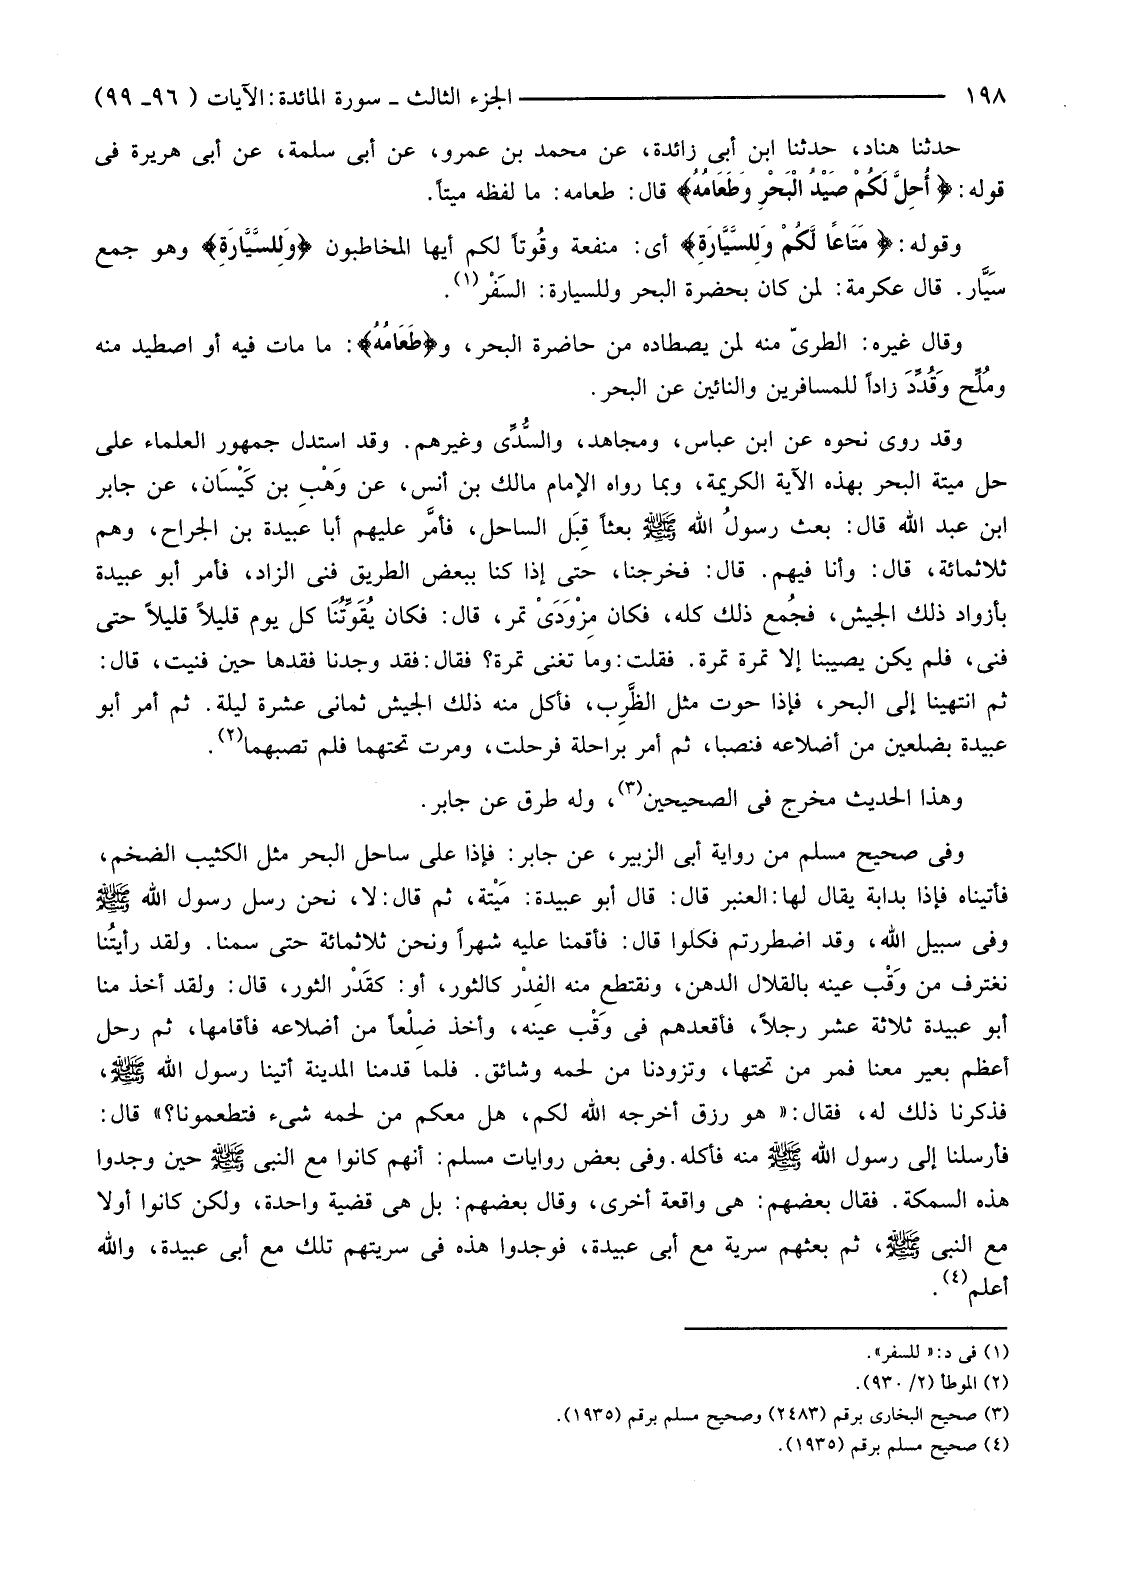 ١٩٨ ــــــــــــــــ الجزء الثالث ـ سورة المائدة : الآيات ( ٩٦ـ ٩٩)
حدثنا هناد، حدثنا ابن أبى زائدة، عن محمد بن عمرو، عن أبى سلمة، عن أبى هريرة فى
قوله: ﴿ أُحِلَّ لَكُمْ صَيْدُ الْبَحْرِ وَطَعَامُهُ﴾ قال: طعامه: ما لفظه ميتاً.
وقوله: ﴿ مَتَاعًا لَّكُمْ وَلِلسَّيَّارَةِ﴾ أى: منفعة وقُوتاً لكم أيها المخاطبون ﴿وَلِلسَّيَّارَةِ﴾ وهو جمع
سَيَّار. قال عكرمة: لمن كان بحضرة البحر وللسيارة: السَفْر(١).
وقال غيره: الطرىّ منه لمن يصطاده من حاضرة البحر، و﴿طَعَامُهُ﴾: ما مات فيه أو اصطيد منه
ومُلِّح وَقُدِّدَ زاداً للمسافرين والنائين عن البحر.
وقد روى نحوه عن ابن عباس، ومجاهد، والسُّدِّى وغيرهم. وقد استدل جمهور العلماء على
حل ميتة البحر بهذه الآية الكريمة، وبما رواه الإمام مالك بن أنس، عن وَهْبِ بن كَيْسَان، عن جابر
ابن عبد الله قال: بعث رسولُ الله ﷺ بعثاً قِبَل الساحل، فأمَّر عليهم أبا عبيدة بن الجراح، وهم
ثلاثمائة، قال: وأنا فيهم. قال: فخرجنا، حتى إذا كنا ببعض الطريق فنى الزاد، فأمر أبو عبيدة
بأزواد ذلك الجيش، فجُمع ذلك كله، فكان مِزْوَدَىْ تمر، قال: فكان يُقَوِّتُنَا كل يوم قليلاً قليلاً حتى
فنى، فلم يكن يصيبنا إلا تمرة تمرة. فقلت: وما تغنى تمرة؟ فقال: فقد وجدنا فقدها حين فنيت، قال:
ثم انتهينا إلى البحر، فإذا حوت مثل الظَّرِب، فأكل منه ذلك الجيش ثمانى عشرة ليلة. ثم أمر أبو
عبيدة بضلعين من أضلاعه فنصبا، ثم أمر براحلة فرحلت، ومرت تحتهما فلم تصبهما(٢).
وهذا الحديث مخرج فى الصحيحين(٣)، وله طرق عن جابر.
وفى صحيح مسلم من رواية أبى الزبير، عن جابر: فإذا على ساحل البحر مثل الكثيب الضخم،
فأتيناه فإذا بدابة يقال لها: العنبر قال: قال أبو عبيدة: مَيْتة، ثم قال: لا، نحن رسل رسول الله ﷺ
وفى سبيل الله، وقد اضطررتم فكلوا قال: فأقمنا عليه شهراً ونحن ثلاثمائة حتى سمنا. ولقد رأيتُنا
نغترف من وَقْب عينه بالقلال الدهن، ونقتطع منه الفِدْر كالثور، أو: كقَدْر الثور، قال: ولقد أخذ منا
أبو عبيدة ثلاثة عشر رجلاً، فأقعدهم فى وَقْب عينه، وأخذ ضِلْعاً من أضلاعه فأقامها، ثم رحل
أعظم بعير معنا فمر من تحتها، وتزودنا من لحمه وشائق. فلما قدمنا المدينة أتينا رسول الله ﷺ،
فذكرنا ذلك له، فقال: « هو رزق أخرجه الله لكم، هل معكم من لحمه شىء فتطعمونا؟» قال:
فأرسلنا إلى رسول الله ﷺ منه فأكله. وفى بعض روايات مسلم: أنهم كانوا مع النبى ﷺ حين وجدوا
هذه السمكة. فقال بعضهم: هى واقعة أخرى، وقال بعضهم: بل هى قضية واحدة، ولكن كانوا أولا
مع النبى ﷺ، ثم بعثهم سرية مع أبى عبيدة، فوجدوا هذه فى سريتهم تلك مع أبى عبيدة، والله
أعلم(٤).
(١) فى د: « للسفر».
(٢) الموطأ (٢/ ٩٣٠).
(٣) صحيح البخارى برقم (٢٤٨٣) وصحيح مسلم برقم (١٩٣٥).
(٤) صحيح مسلم برقم (١٩٣٥).